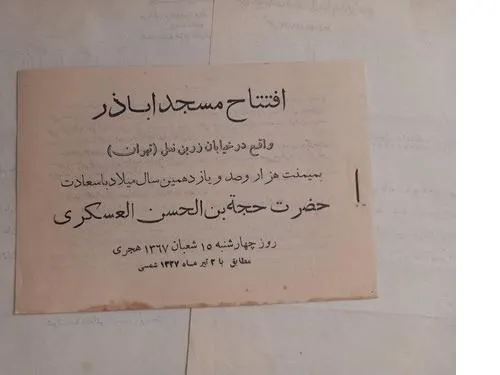 افتتاح مسجد اباذر
واقع در خیابان زرین نعل (تهران)
بمیمنت هزار وصد و یازدهمین سال میلاد باسعادت
حضرت حجة بن الحسن العسکری
روز چهارشنبه ۱۵ شعبان ۱۳۶۷ هجری
مطابق با ۲ تیر ماه ۱۳۲۷ شمسی